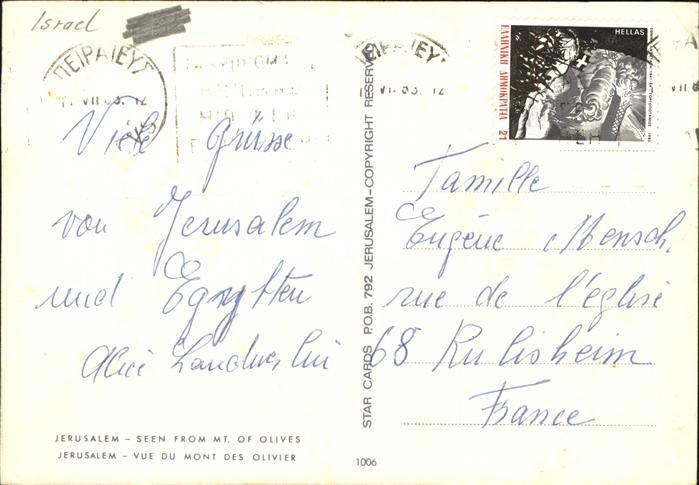 Israel
ΠΕΙΡΑΙΕΥΣ
VII 83. 12
ΠΕΙΡΑΙΕΥΣ
VII 83. 12
HELLAS
ΕΛΛΗΝΙΚΗ ΔΗΜΟΚΡΑΤΙΑ 21
Viele Grüsse
von Jerusalem
und Egypten
Alice
STAR CARDS P.O.B. 792 JERUSALEM–COPYRIGHT RESERVED
Famille
Eugène Mensch,
rue de l'église
68 Rulisheim
France
JERUSALEM – SEEN FROM MT. OF OLIVES
JERUSALEM – VUE DU MONT DES OLIVIER
1006